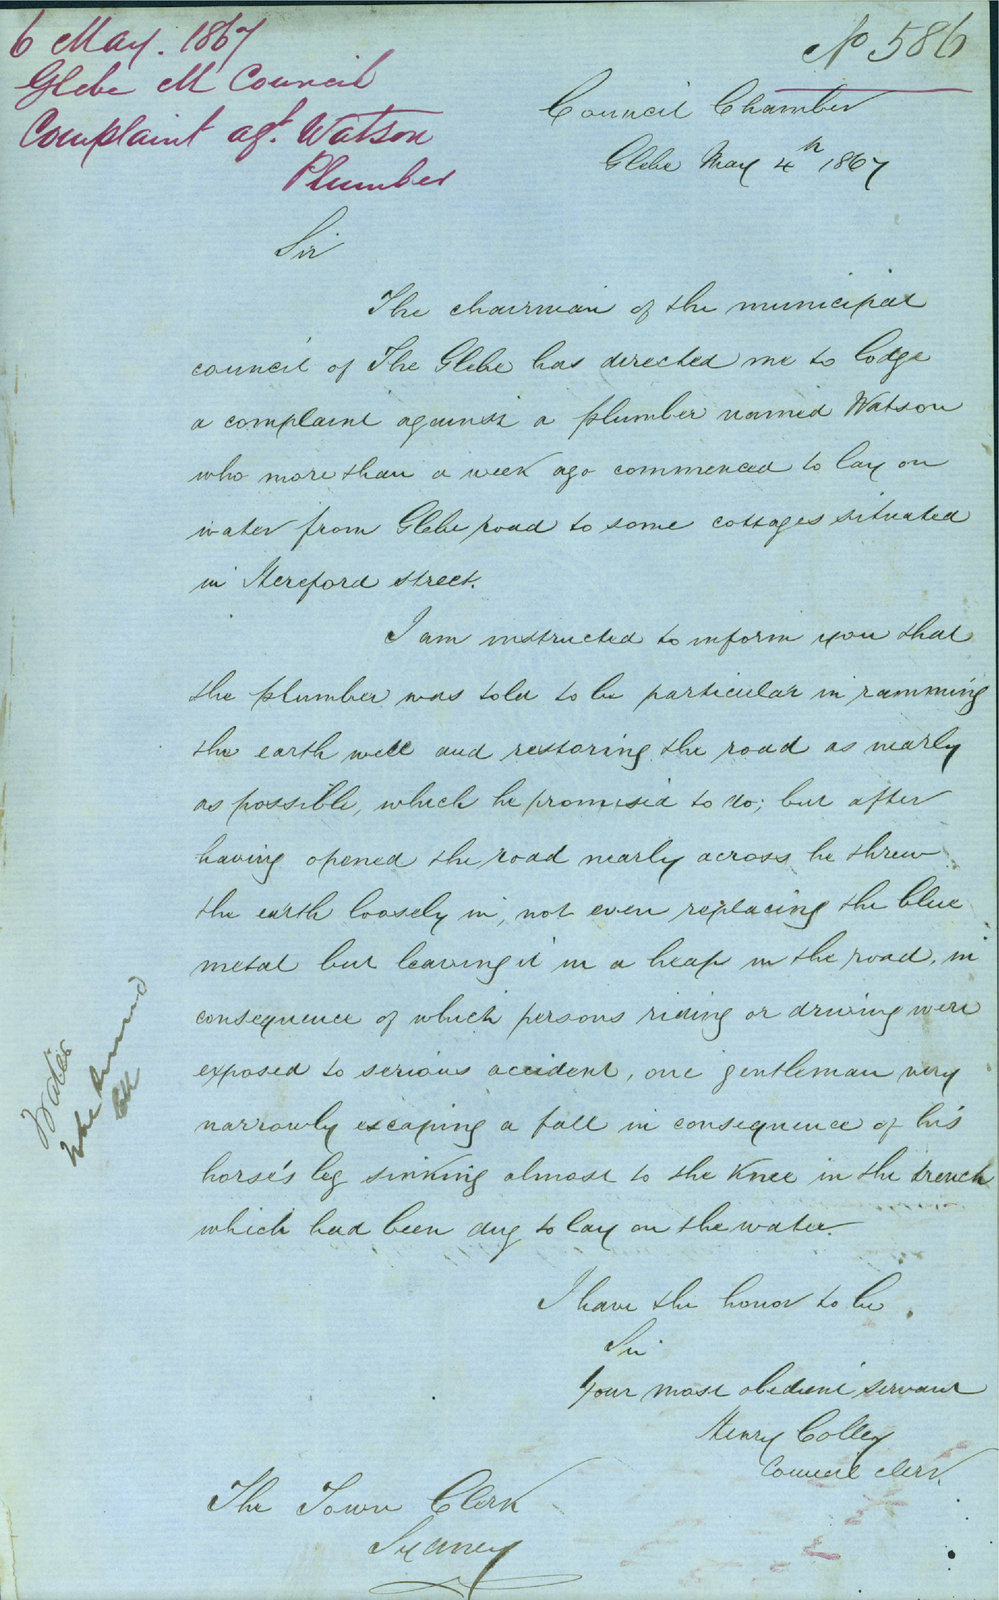 6 May. 1867
Glebe M Council
Complaint agt. Watson
Plumber
No 586
Council Chamber
Glebe May 4th 1867
Sir
The chairman of the municipal
council of The Glebe has directed me to lodge
a complaint against a plumber named Watson
who more than a week ago commenced to lay on
water from Glebe road to some cottages situated
in Hereford street.
I am instructed to inform you that
the plumber was told to be particular in ramming
the earth well and restoring the road as nearly
as possible, which he promised to do; but after
having opened the road nearly across he threw
the earth loosely in, not even replacing the blue
metal but leaving it in a heap in the road, in
consequence of which persons riding or driving were
exposed to serious accident, one gentleman very
narrowly escaping a fall in consequence of his
horse's leg sinking almost to the knee in the trench
which had been dug to lay on the water.
I have the honor to be
Sir
Your most obedient servant
Henry Colley
Council clerk
The Town Clerk
Sydney
Water